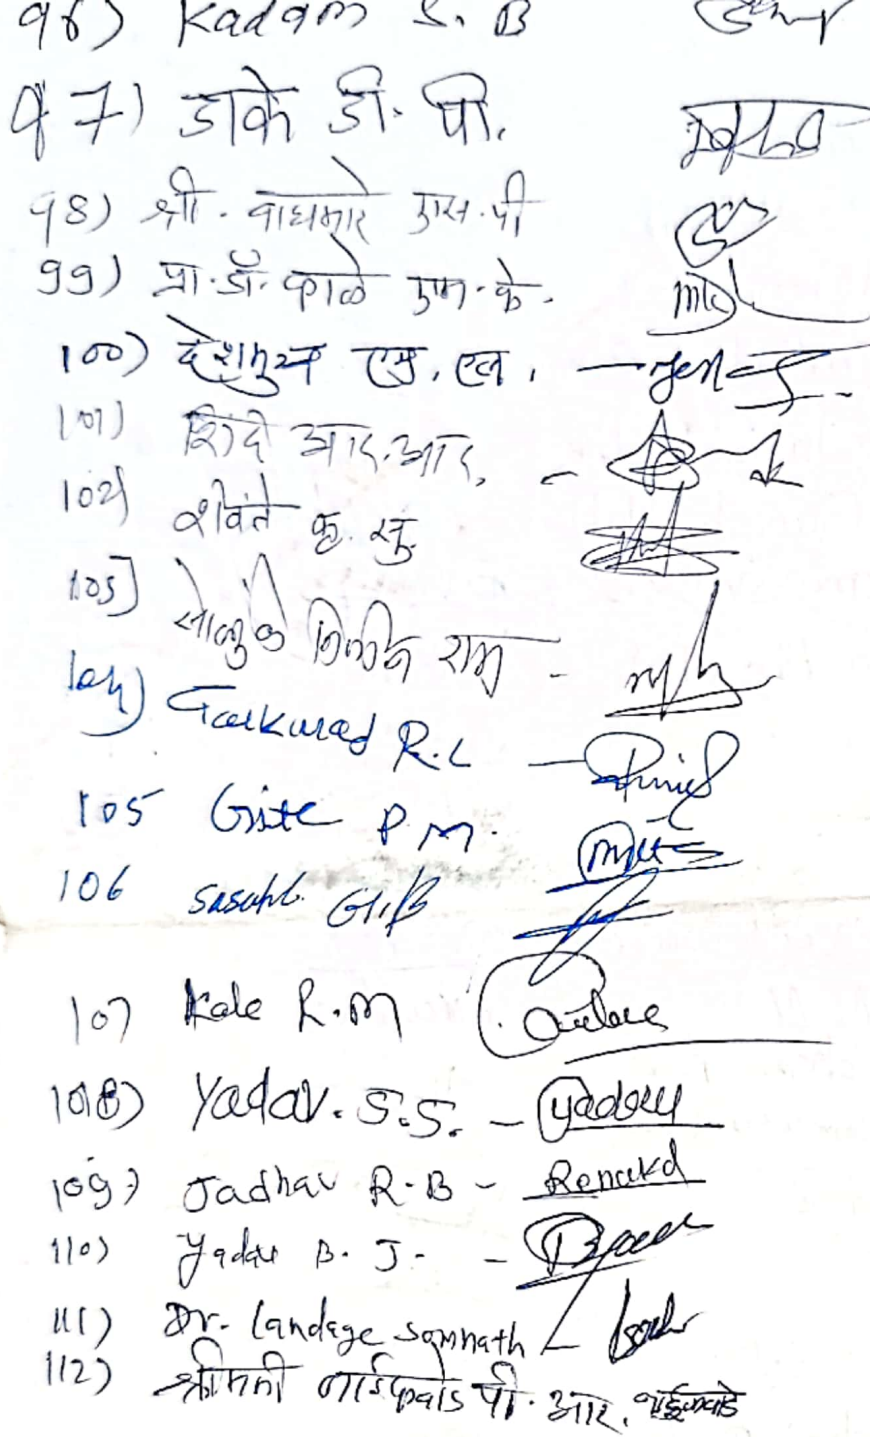 96) Kadam S. B
97) डाके डी. पी.
98) श्री. वाघमारे एस.पी
99) प्रा.डॉ. काळे एम.के.
100) देशमुख एम. एल.
101) शिंदे आर.आर.
102) शेवंते कृ. खु.
103]
104) Gaikwad R.L
105 Gite P.M.
106
107 Kale R.M
108) Yadav. S.S. - Yadav
109) Jadhav R.B -
110) Yadav B. J. -
111) Dr. Landage Somnath
112) श्रीमती नाईकवाडे पी. आर. नाईकवाडे